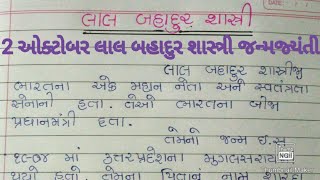 લાલ બહાદુર શાસ્ત્રી
2 ઓક્ટોબર લાલ બહાદુર શાસ્ત્રી જન્મજયંતી
લાલ બહાદુર શાસ્ત્રીજી
ભારતના એક મહાન નેતા અને સ્વતંત્રતા
સેનાની હતા. તેઓ ભારતના બીજા
પ્રધાનમંત્રી હતા.
તેમનો જન્મ ઈ.સ
૧૯૦૪ માં ઉત્તરપ્રદેશના મુગલસરાય
થયો હતો. તેમના પિતાનું નામ શારદા